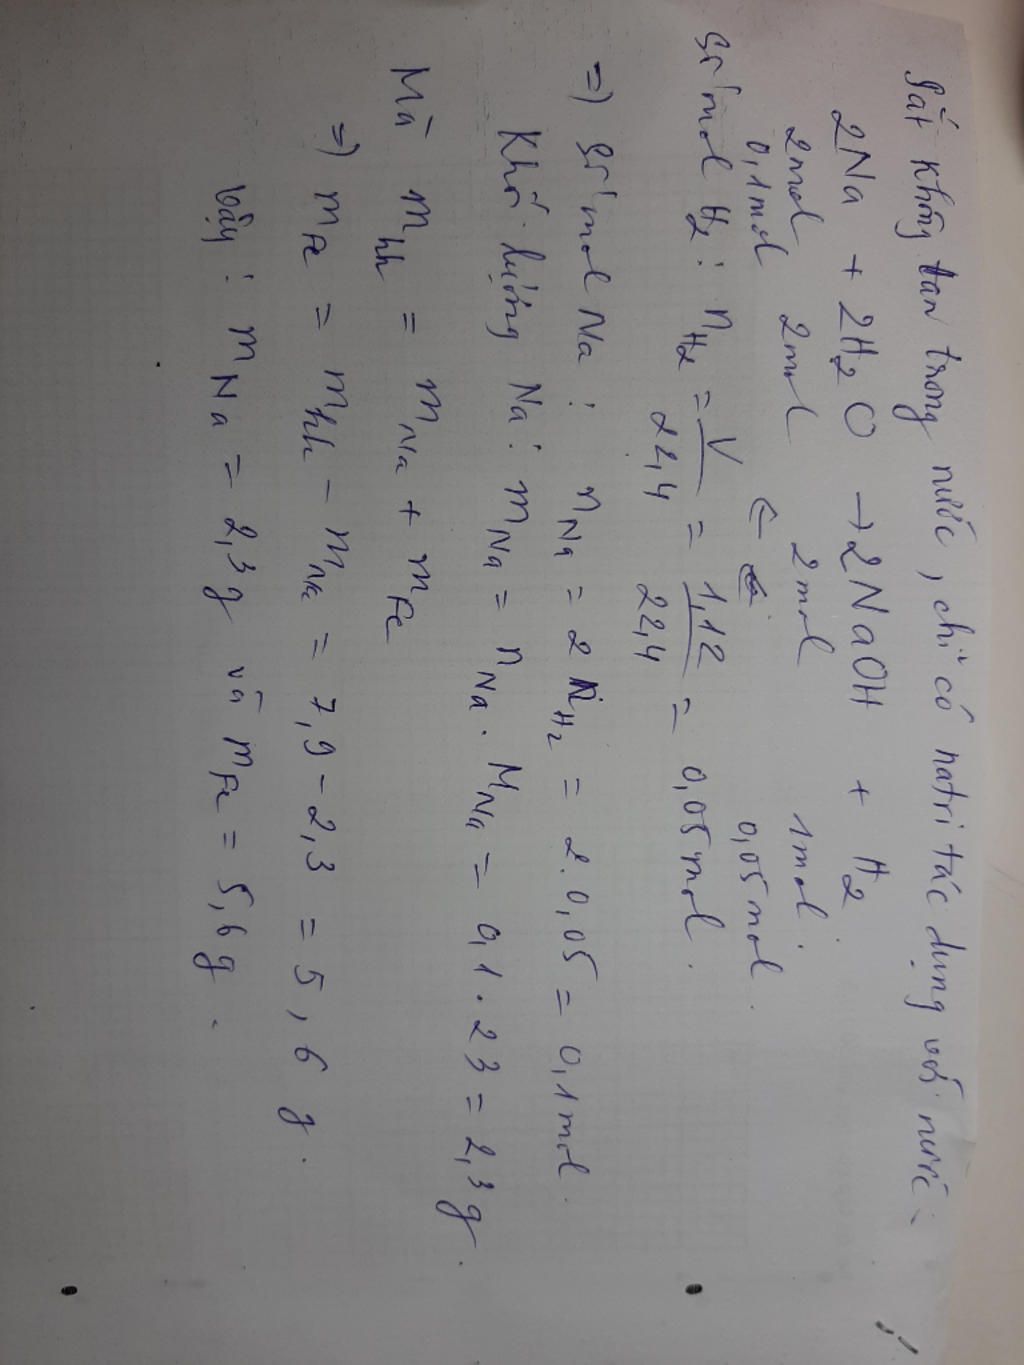 Sắt không tan trong nước, chỉ có natri tác dụng với nước:
2Na + 2H₂O → 2NaOH + H₂
2mol 2mol 2mol 1mol.
0,1mol ← 0,05mol.
Số mol H₂: nH₂ = V/22,4 = 1,12/22,4 = 0,05mol.
=) Số mol Na: nNa = 2 nH₂ = 2.0,05 = 0,1mol.
Khối lượng Na: mNa = nNa . MNa = 0,1 . 23 = 2,3g.
Mà mhh = mNa + mFe
=) mFe = mhh - mNa = 7,9 - 2,3 = 5,6 g.
Vậy: mNa = 2,3g và mFe = 5,6g.